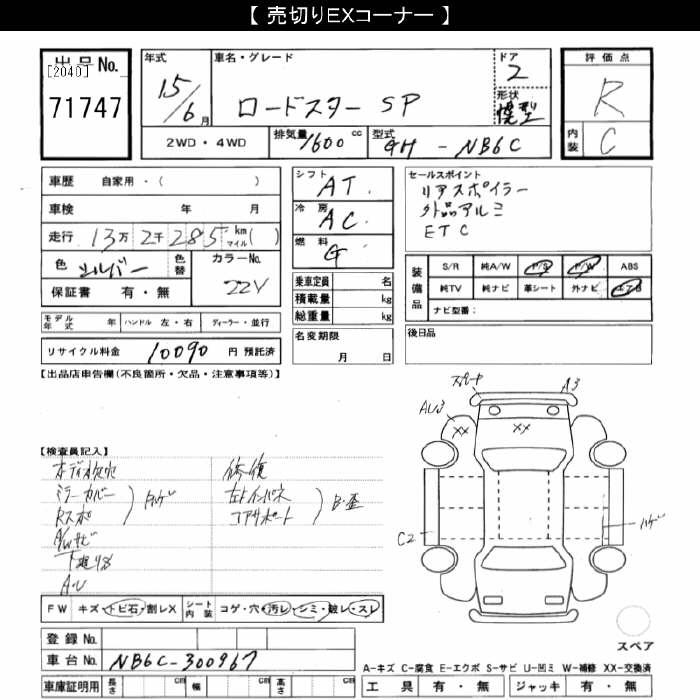 【 売切りEXコーナー 】
出品No.
[2040]
71747
年式
15/6月
車名・グレード
ロードスター SP
ドア
2
形状
幌型
評価点
R
内装
C
2WD・4WD
排気量 1600 cc
型式 GH - NB6C
車歴 自家用・( )
車検 年 月
走行 13万2千285 km マイル( )
色 シルバー
色替
カラーNo.
22V
保証書 有・無
モデル年式 年
ハンドル 左・右
ディーラー・並行
リサイクル料金 10090 円 預託済
シフト AT.
冷房 AC.
燃料 G
乗車定員 名
積載量 kg
総重量 kg
名変期限
月 日
セールスポイント
リアスポイラー
外品アルミ
ETC
装備品
S/R 純A/W P/S P/W ABS
純TV 純ナビ 革シート 外ナビ エアB
ナビ型番:
後日品
【出品店申告欄(不良箇所・欠品・注意事項等)】
【検査員記入】
ボディ
ミラーカバー
Rスポ
ハゲ
A/Wサビ
修復
左トインパネ
コアサポート
B・歪
FW キズ・トビ石・割レX
シート内装 コゲ・穴・汚レ・シミ・破レ・スレ
登録 No.
車台 No. NB6C-300967
車庫証明用 長さ cm 幅 cm 高さ cm
A3
XX
XX
C2
ハゲ
スペア
A-キズ C-腐食 E-エクボ S-サビ U-凹ミ W-補修 XX-交換済
工具 有・無 ジャッキ 有・無